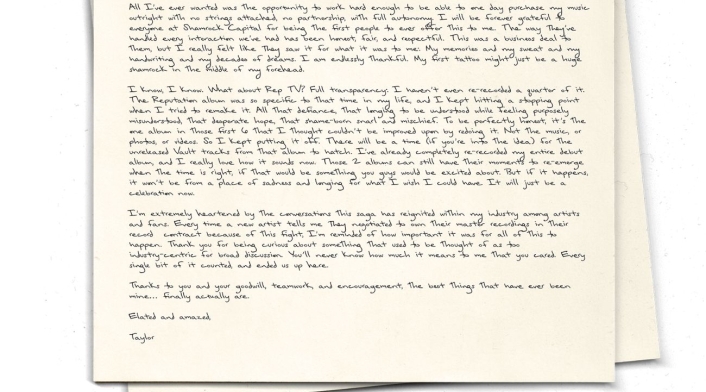 All I've ever wanted was the opportunity to work hard enough to be able to one day purchase my music
outright with no strings attached, no partnership, with full autonomy. I will be forever grateful to
everyone at Shamrock Capital for being the first people to ever offer this to me. The way they've
handled every interaction we've had has been honest, fair, and respectful. This was a business deal to
them, but I really felt like they saw it for what it was to me: My memories and my sweat and my
handwriting and my decades of dreams. I am endlessly thankful. My first tattoo might just be a huge
shamrock in the middle of my forehead.
I know, I know. What about Rep TV? Full transparency: I haven't even re-recorded a quarter of it.
The Reputation album was so specific to that time in my life, and I kept hitting a stopping point
when I tried to remake it. All that defiance, that longing to be understood while feeling purposely
misunderstood, that desperate hope, that shame-born snarl and mischief. To be perfectly honest, it's the
one album in those first 6 that I thought couldn't be improved upon by redoing it. Not the music, or
photos, or videos. So I kept putting it off. There will be a time (if you're into the idea) for the
unreleased Vault tracks from that album to hatch. I've already completely re-recorded my entire debut
album, and I really love how it sounds now. Those 2 albums can still have their moments to re-emerge
when the time is right, if that would be something you guys would be excited about. But if it happens,
it won't be from a place of sadness and longing for what I wish I could have. It will just be a
celebration now.
I'm extremely heartened by the conversations this saga has reignited within my industry among artists
and fans. Every time a new artist tells me they negotiated to own their master recordings in their
record contract because of this fight, I'm reminded of how important it was for all of this to
happen. Thank you for being curious about something that used to be thought of as too
industry-centric for broad discussion. You'll never know how much it means to me that you cared. Every
single bit of it counted and ended us up here.
Thanks to you and your goodwill, teamwork, and encouragement, the best things that have ever been
mine... finally actually are.
Elated and amazed,
Taylor